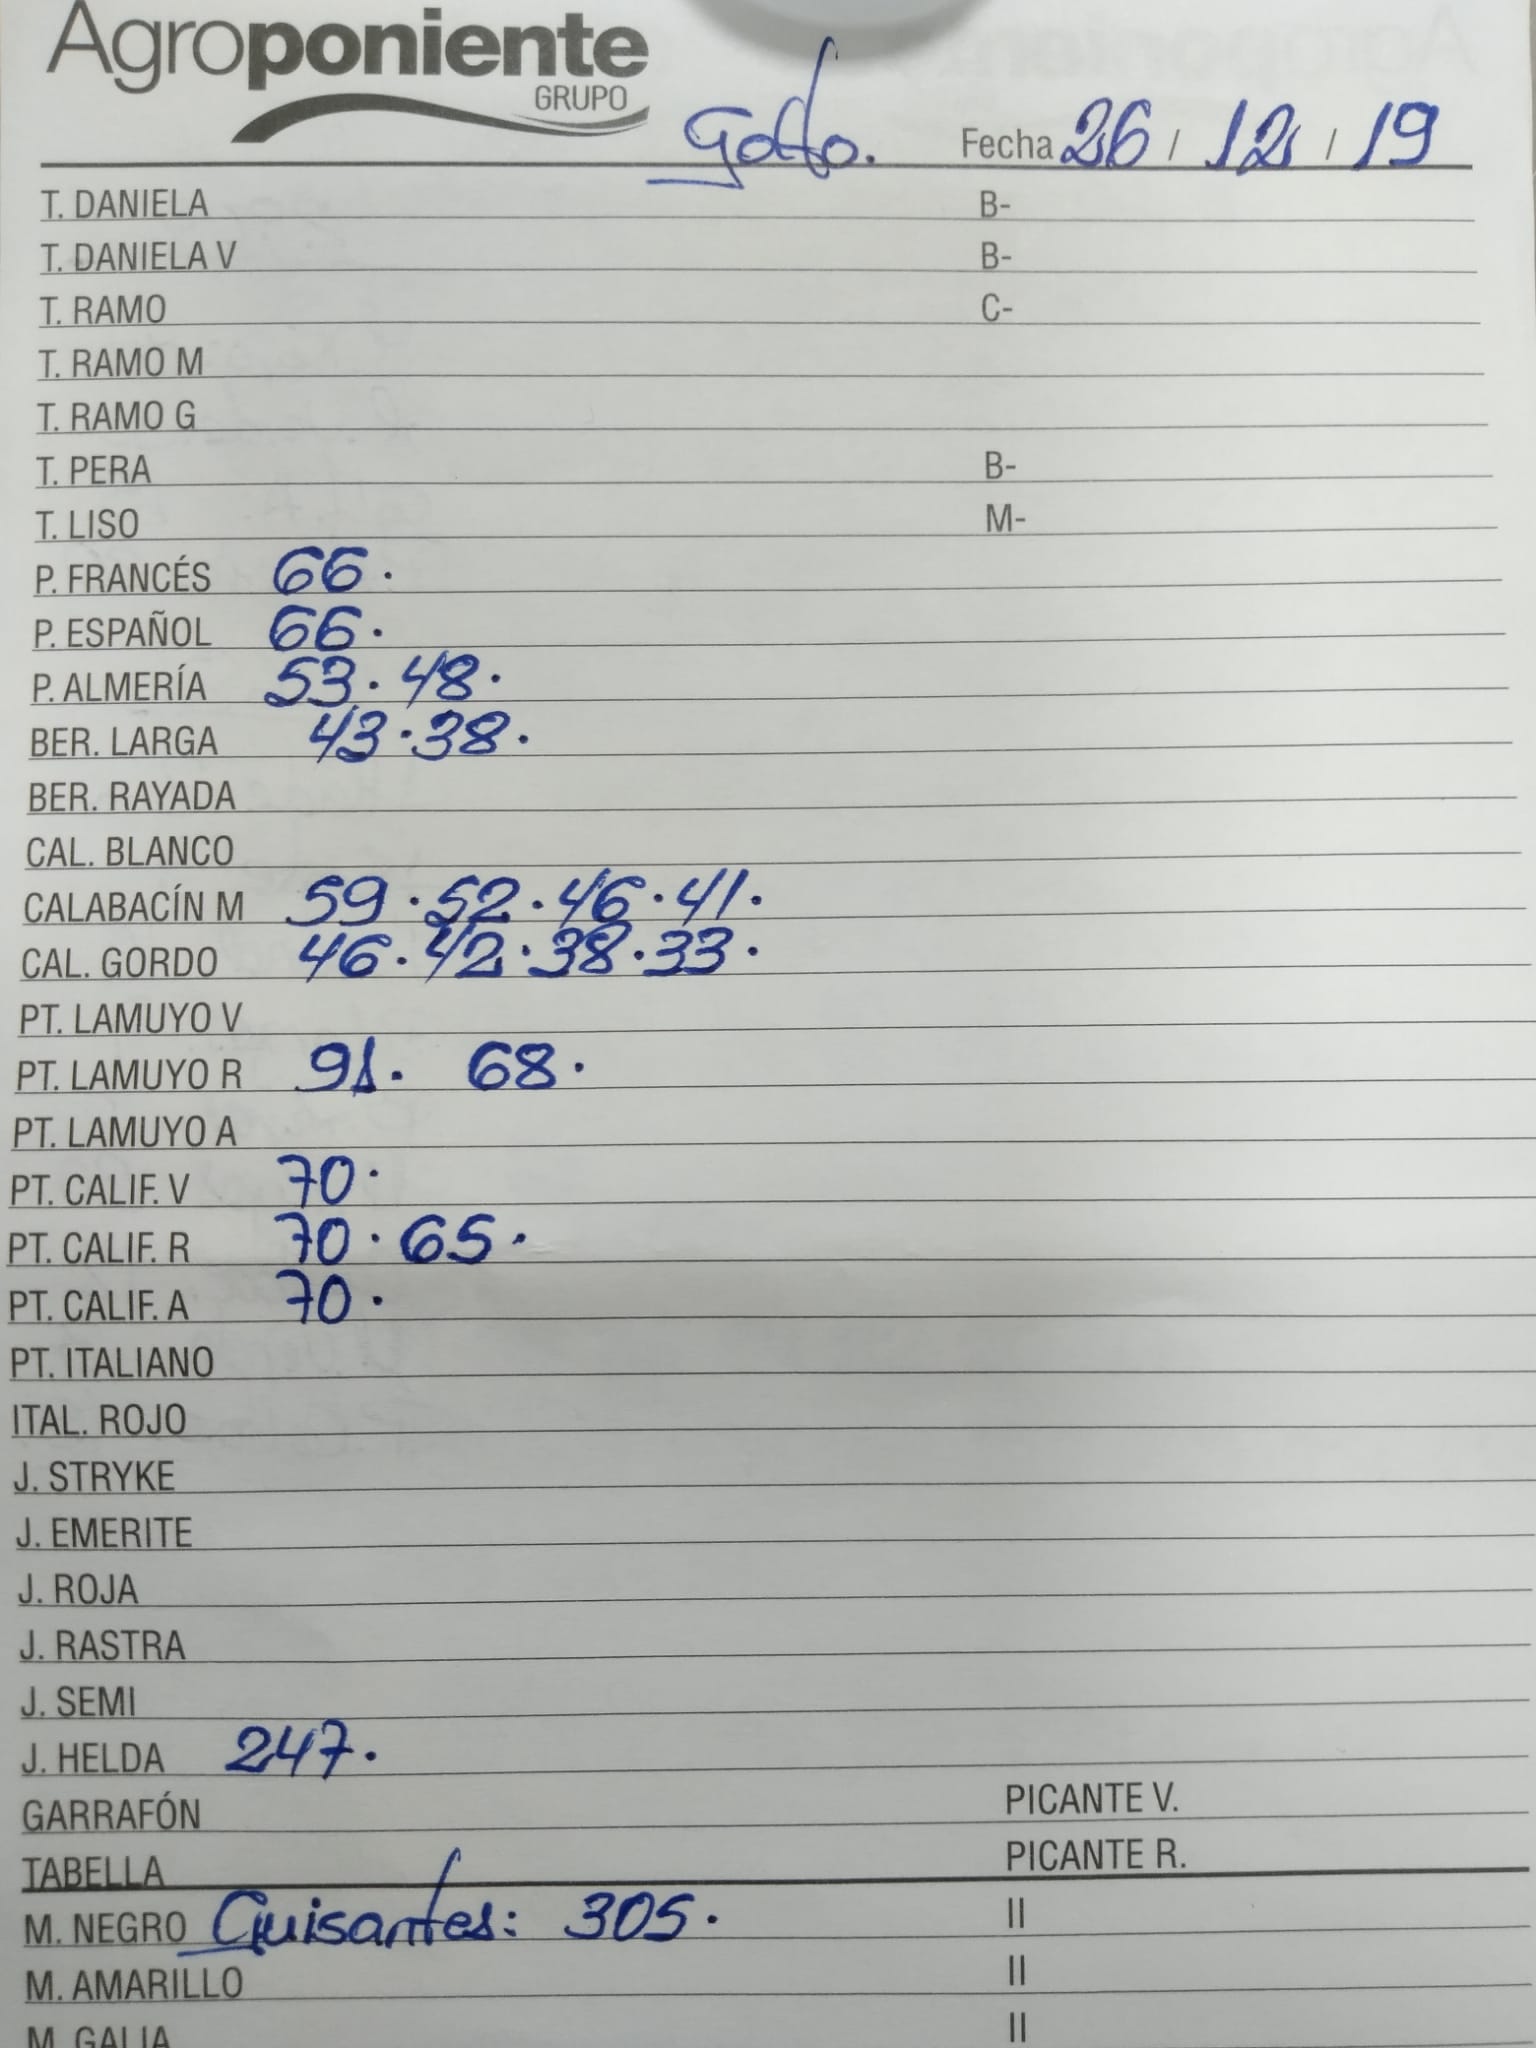 Agroponiente
GRUPO
Golfo. Fecha 26 / 12 / 19
T. DANIELA B-
T. DANIELA V B-
T. RAMO C-
T. RAMO M
T. RAMO G
T. PERA B-
T. LISO M-
P. FRANCÉS 66.
P. ESPAÑOL 66.
P. ALMERÍA 53. 48.
BER. LARGA 43.38.
BER. RAYADA
CAL. BLANCO
CALABACÍN M 59.52.46.41.
CAL. GORDO 46.42.38.33.
PT. LAMUYO V
PT. LAMUYO R 91. 68.
PT. LAMUYO A
PT. CALIF. V 70.
PT. CALIF. R 70.65.
PT. CALIF. A 70.
PT. ITALIANO
ITAL. ROJO
J. STRYKE
J. EMERITE
J. ROJA
J. RASTRA
J. SEMI
J. HELDA 247.
GARRAFÓN PICANTE V.
TABELLA PICANTE R.
M. NEGRO Guisantes: 305. II
M. AMARILLO II
M. GALIA II